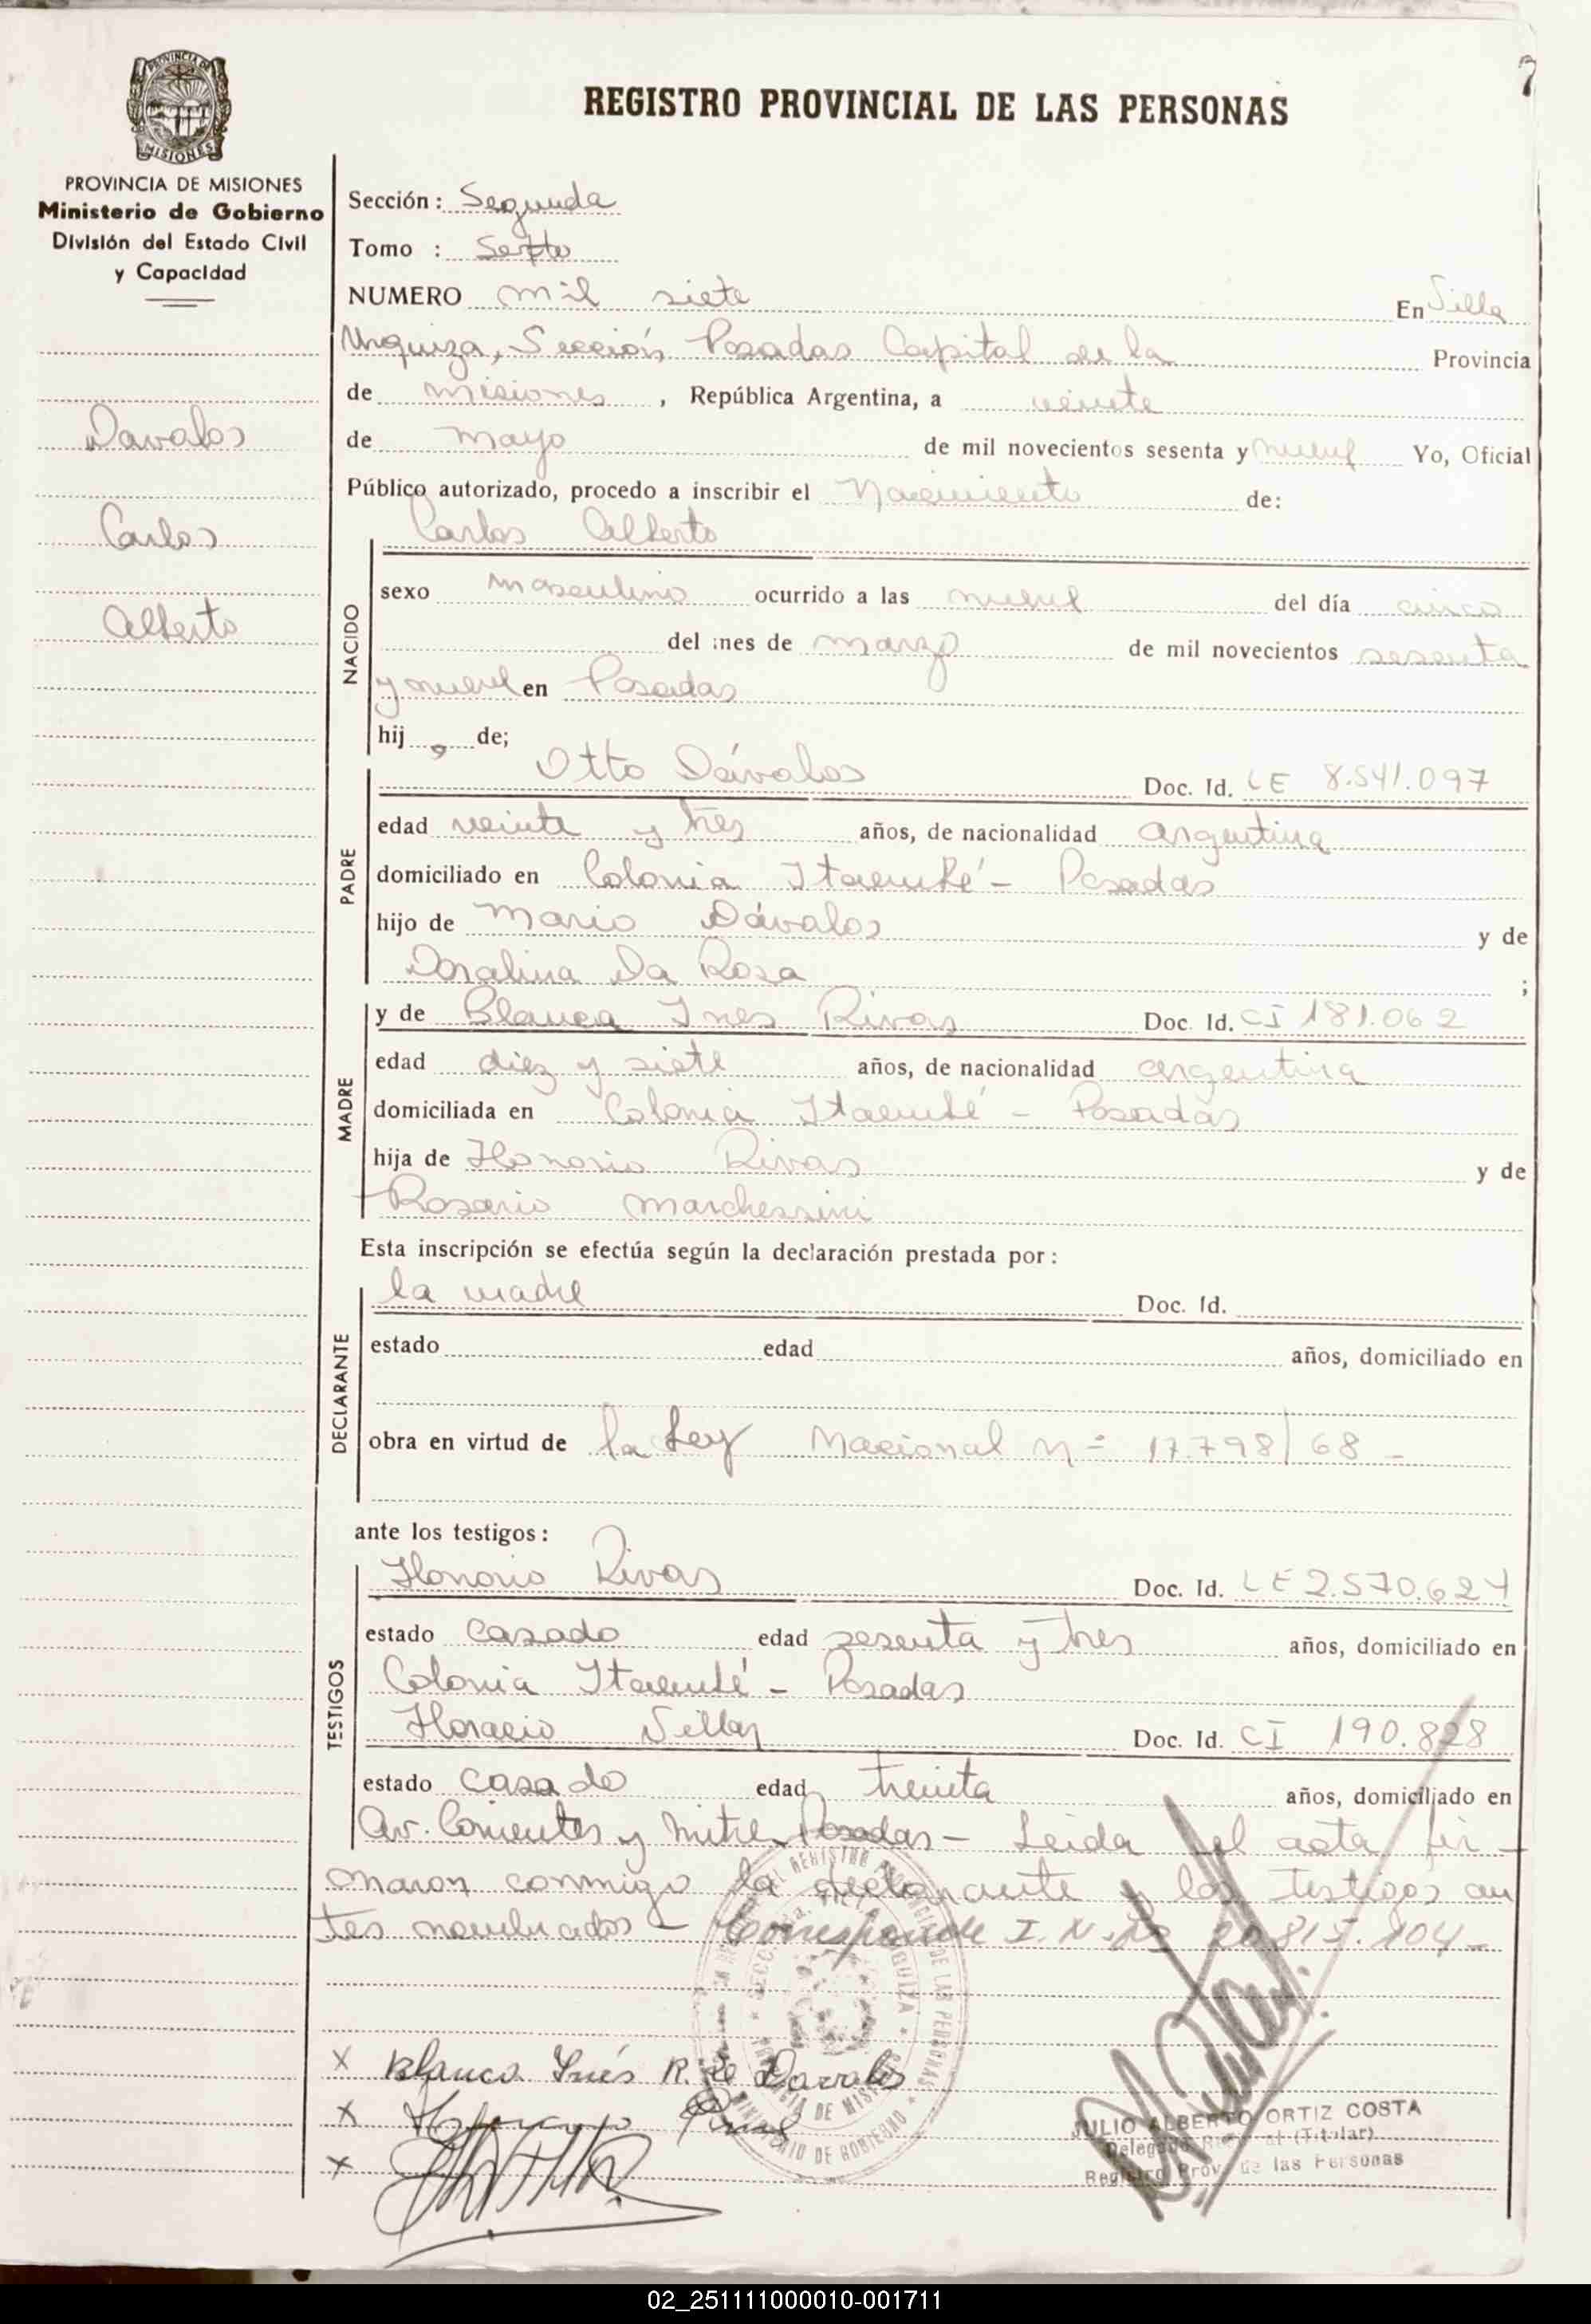 7
REGISTRO PROVINCIAL DE LAS PERSONAS
MISIONES
PROVINCIA DE MISIONES
Ministerio de Gobierno
División del Estado Civil
y Capacidad
Davalos
Carlos
Alberto
Sección: Segunda
Tomo : Sexto
NUMERO mil siete En Villa
Urquiza, Sección Posadas Capital de la Provincia
de misiones, República Argentina, a veinte
de mayo de mil novecientos sesenta y nueve Yo, Oficial
Público autorizado, procedo a inscribir el Nacimiento de:
Carlos Alberto
NACIDO
sexo masculino ocurrido a las nueve del día cinco
del mes de marzo de mil novecientos sesenta
y nueve en Posadas
hijo de;
Otto Dávalos Doc. Id. LE 8.541.097
PADRE
edad veinte y tres años, de nacionalidad argentina
domiciliado en Colonia Itaembé - Posadas
hijo de Mario Dávalos y de
Doralina Da Rosa ;
MADRE
y de Blanca Ines Rivas Doc. Id. CI 181.062
edad diez y siete años, de nacionalidad argentina
domiciliada en Colonia Itaembé - Posadas
hija de Honorio Rivas y de
Rosario Marchessini
Esta inscripción se efectúa según la declaración prestada por:
DECLARANTE
la madre Doc. Id.
estado edad años, domiciliado en
obra en virtud de la Ley Nacional Nº 17.798/68 -
ante los testigos:
TESTIGOS
Honorio Rivas Doc. Id. LE 2.570.624
estado casado edad sesenta y tres años, domiciliado en
Colonia Itaembé - Posadas
Horacio Doc. Id. CI 190.828
estado casado edad treinta años, domiciliado en
Av. Corrientes y Mitre Posadas - Leida el acta fir-
maron conmigo la declarante y los testigos an
tes nombrados - Corresponde I.N. 20815.104-
x Blanca Inés R. de Davalos
x
x
JULIO ALBERTO ORTIZ COSTA
(Titular)
Registro Prov. de las Personas
02_251111000010-001711